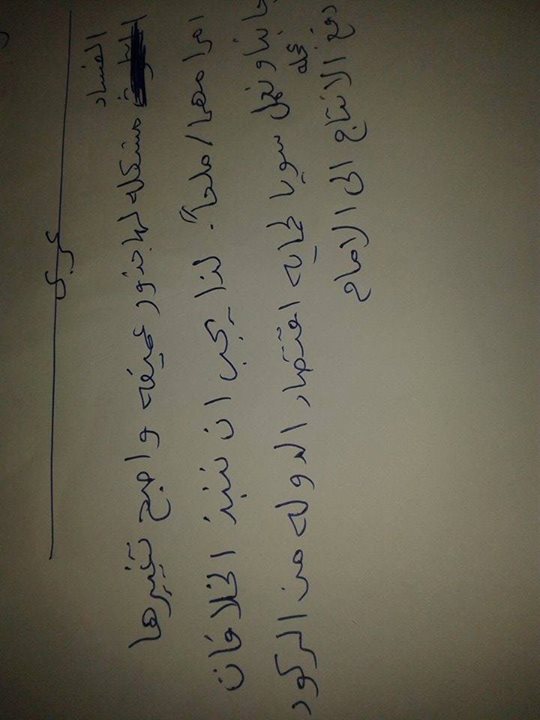 عربى
الفساد
مشكله لها جذور عميقه واصبح تغيرها
امرا مهما/ملحاً. لذا يجب ان ننبذ الخلافات
جانبا و نعمل سويا لحمايه اقتصاد الدوله من الركود
دفع الانتاج الى الامام